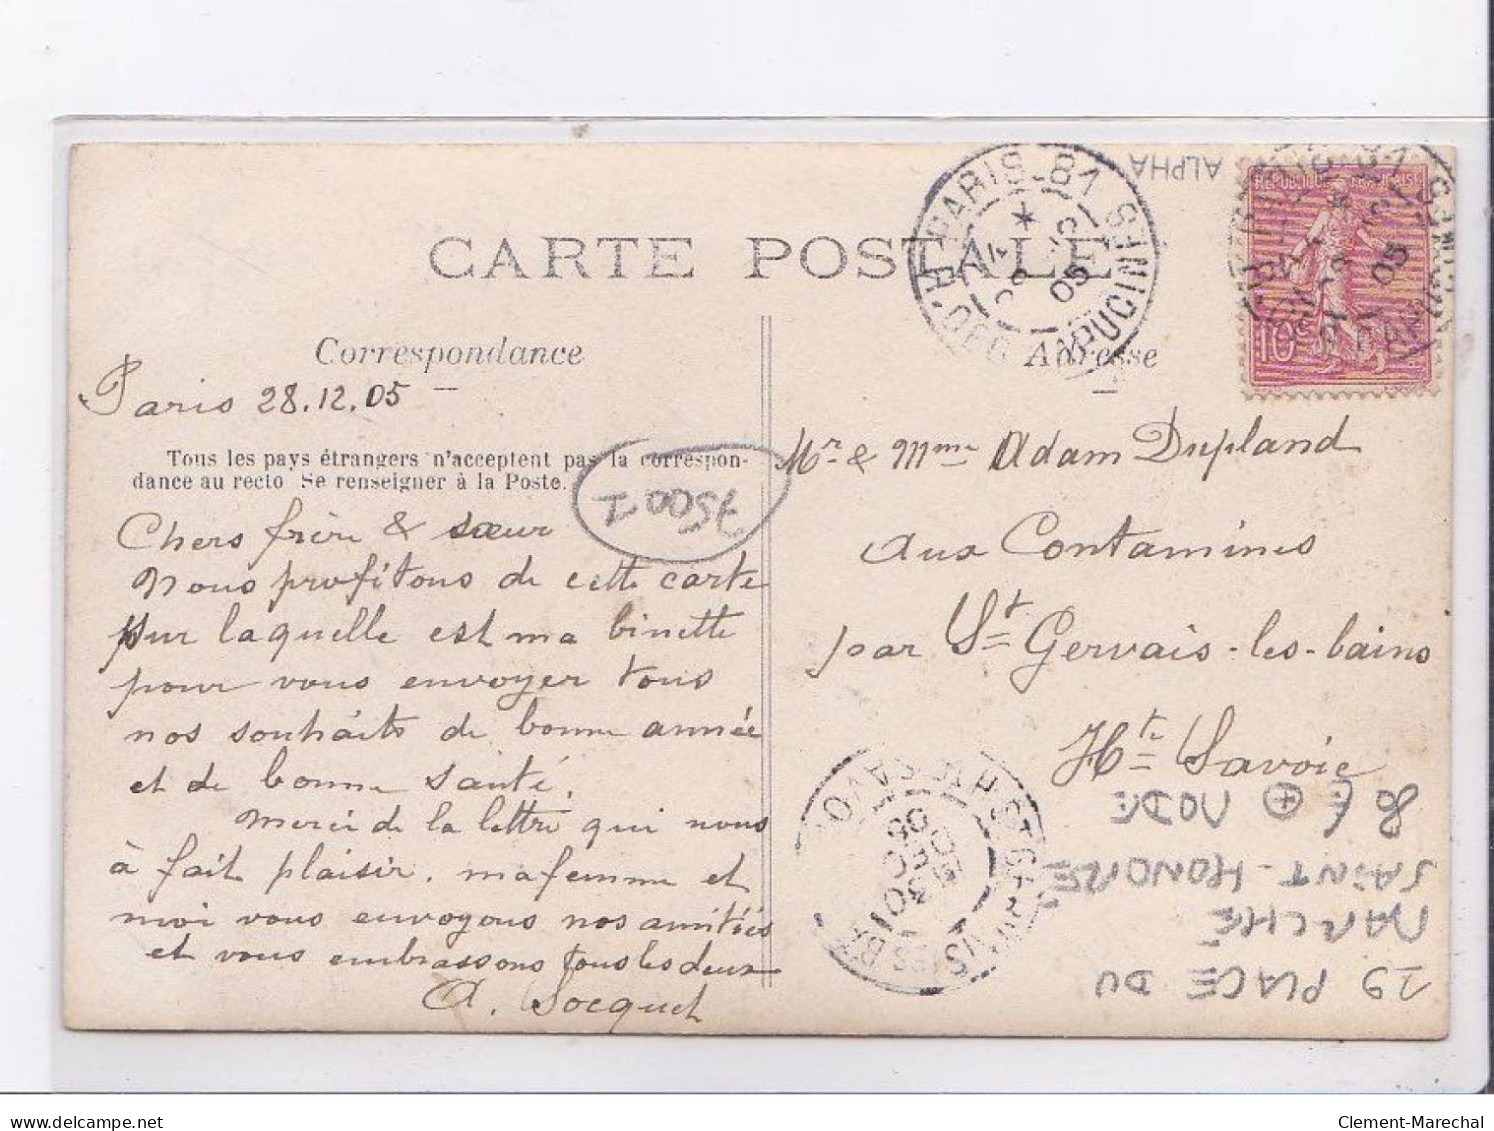 ALPHA
PARIS-81
R. DES CAPUCINES
05
REPUBLIQUE FRANÇAISE
10c
CARTE POSTALE
Correspondance
Adresse
Paris 28.12.05
Tous les pays étrangers n'acceptent pas la correspon-
dance au recto Se renseigner à la Poste.
75001
Chers frère & sœur
Nous profitons de cette carte
sur laquelle est ma binette
pour vous envoyer tous
nos souhaits de bonne année
et de bonne santé.
Merci de la lettre qui nous
à fait plaisir. ma femme et
moi vous envoyons nos amitiés
et vous embrassons tous les deux
A. Socquet
Mr & Mme Adam Dupland
aux Contamines
par St Gervais-les-bains
Hte Savoie
ST GERVAIS LES B
HTE SAVOIE
30
05
29 PLACE DU
MARCHÉ
SAINT-HONORÉ
80 € + MODE
delcampe.net
Clement-Marechal